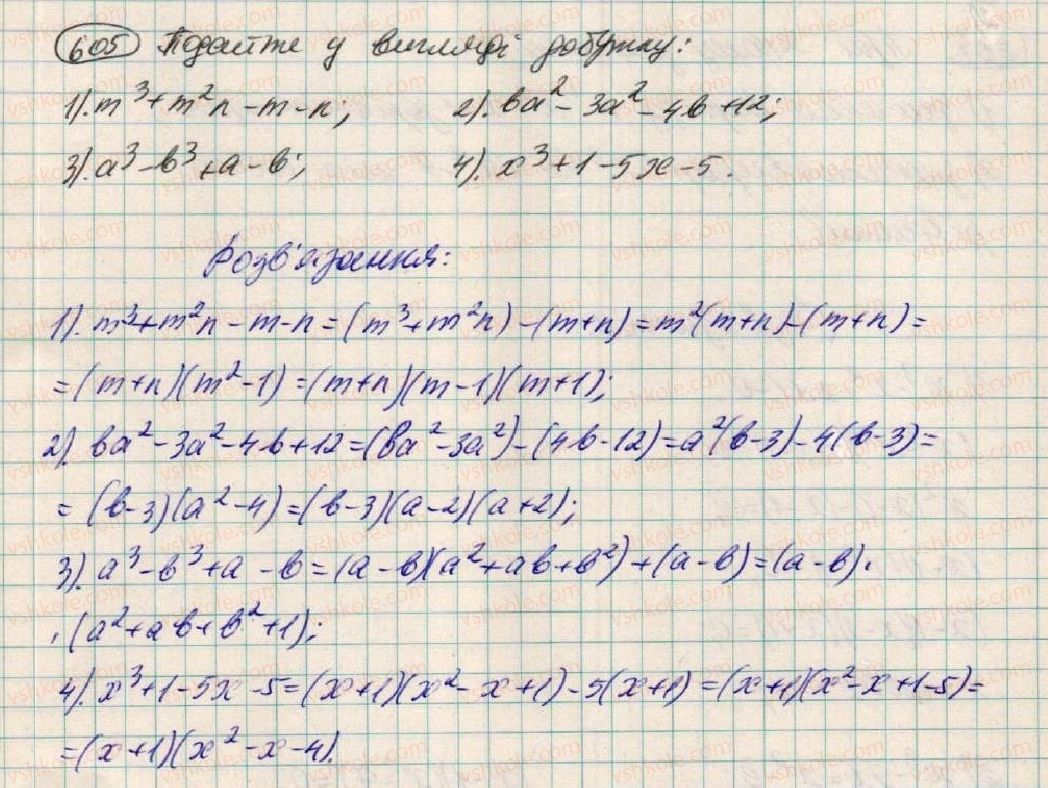 605 Подайте у вигляді добутку:
1). m³+m²n-m-n; 2). ba²-3a²-4b+12;
3). a³-b³+a-b; 4). x³+1-5x-5.
Розв'язання:
1). m³+m²n-m-n=(m³+m²n)-(m+n)=m²(m+n)-(m+n)=
=(m+n)(m²-1)=(m+n)(m-1)(m+1);
2). ba²-3a²-4b+12=(ba²-3a²)-(4b-12)=a²(b-3)-4(b-3)=
=(b-3)(a²-4)=(b-3)(a-2)(a+2);
3). a³-b³+a-b=(a-b)(a²+ab+b²)+(a-b)=(a-b)·
·(a²+ab+b²+1);
4). x³+1-5x-5=(x+1)(x²-x+1)-5(x+1)=(x+1)(x²-x+1-5)=
=(x+1)(x²-x-4).